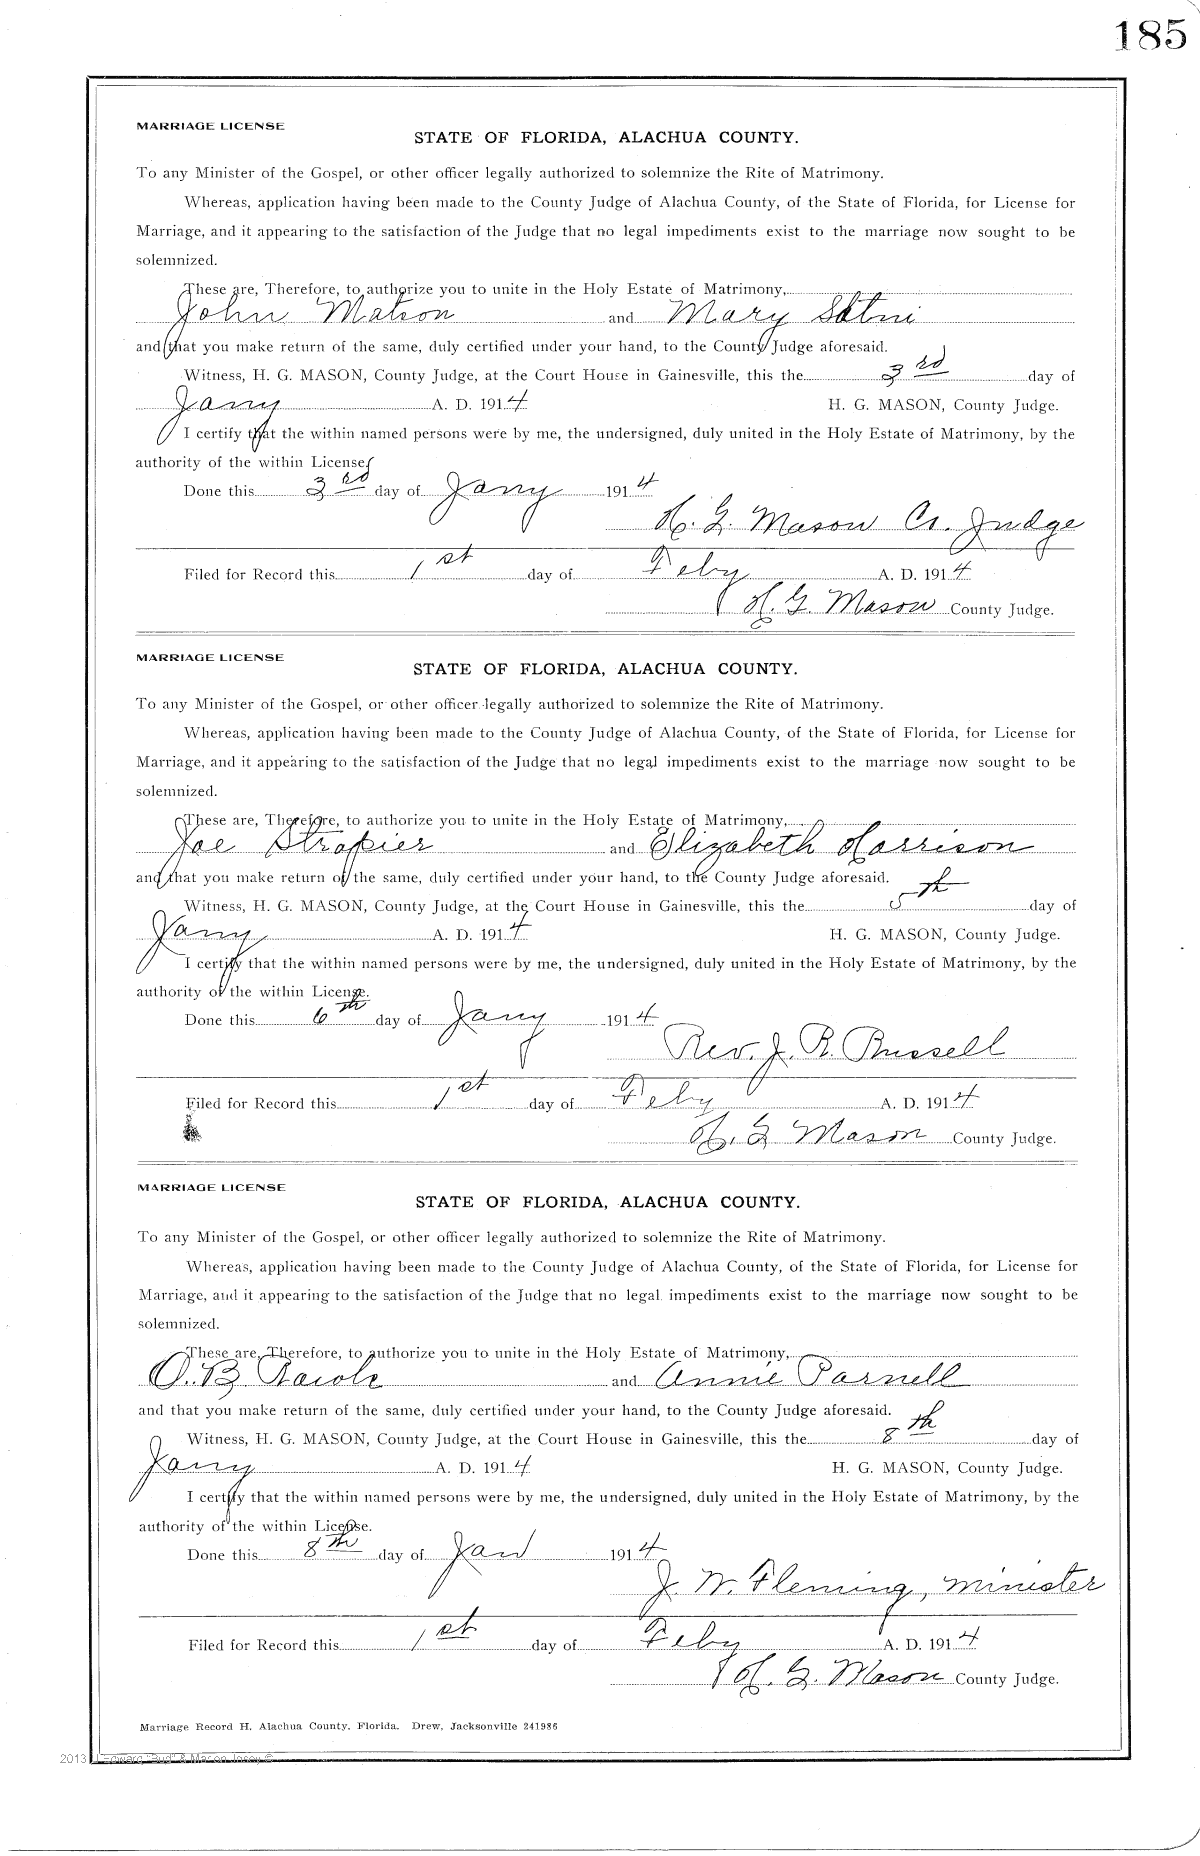 185
MARRIAGE LICENSE
STATE OF FLORIDA, ALACHUA COUNTY.
To any Minister of the Gospel, or other officer legally authorized to solemnize the Rite of Matrimony.
Whereas, application having been made to the County Judge of Alachua County, of the State of Florida, for License for
Marriage, and it appearing to the satisfaction of the Judge that no legal impediments exist to the marriage now sought to be
solemnized.
These are, Therefore, to authorize you to unite in the Holy Estate of Matrimony,
John Matson and Mary
and that you make return of the same, duly certified under your hand, to the County Judge aforesaid.
Witness, H. G. MASON, County Judge, at the Court House in Gainesville, this the 3rd day of
Jany A. D. 1914 H. G. MASON, County Judge.
I certify that the within named persons were by me, the undersigned, duly united in the Holy Estate of Matrimony, by the
authority of the within License.
Done this 3rd day of Jany 1914
H. G. Mason Co. Judge
Filed for Record this 1st day of Feby A. D. 1914
H. G. Mason County Judge.
MARRIAGE LICENSE
STATE OF FLORIDA, ALACHUA COUNTY.
To any Minister of the Gospel, or other officer legally authorized to solemnize the Rite of Matrimony.
Whereas, application having been made to the County Judge of Alachua County, of the State of Florida, for License for
Marriage, and it appearing to the satisfaction of the Judge that no legal impediments exist to the marriage now sought to be
solemnized.
These are, Therefore, to authorize you to unite in the Holy Estate of Matrimony,
Joe Strapier and Elizabeth Harrison
and that you make return of the same, duly certified under your hand, to the County Judge aforesaid.
Witness, H. G. MASON, County Judge, at the Court House in Gainesville, this the 5th day of
Jany A. D. 1914 H. G. MASON, County Judge.
I certify that the within named persons were by me, the undersigned, duly united in the Holy Estate of Matrimony, by the
authority of the within License.
Done this 6th day of Jany 1914
Rev. J. R. Russell
Filed for Record this 1st day of Feby A. D. 1914
H. G Mason County Judge.
MARRIAGE LICENSE
STATE OF FLORIDA, ALACHUA COUNTY.
To any Minister of the Gospel, or other officer legally authorized to solemnize the Rite of Matrimony.
Whereas, application having been made to the County Judge of Alachua County, of the State of Florida, for License for
Marriage, and it appearing to the satisfaction of the Judge that no legal impediments exist to the marriage now sought to be
solemnized.
These are, Therefore, to authorize you to unite in the Holy Estate of Matrimony,
O. B and Annie Parnell
and that you make return of the same, duly certified under your hand, to the County Judge aforesaid.
Witness, H. G. MASON, County Judge, at the Court House in Gainesville, this the 8th day of
Jany A. D. 1914 H. G. MASON, County Judge.
I certify that the within named persons were by me, the undersigned, duly united in the Holy Estate of Matrimony, by the
authority of the within License.
Done this 8th day of Jan 1914
J. W. Fleming, minister
Filed for Record this 1st day of Feby A. D. 1914
H. G. Mason County Judge.
Marriage Record H. Alachua County, Florida. Drew, Jacksonville 241986
2013